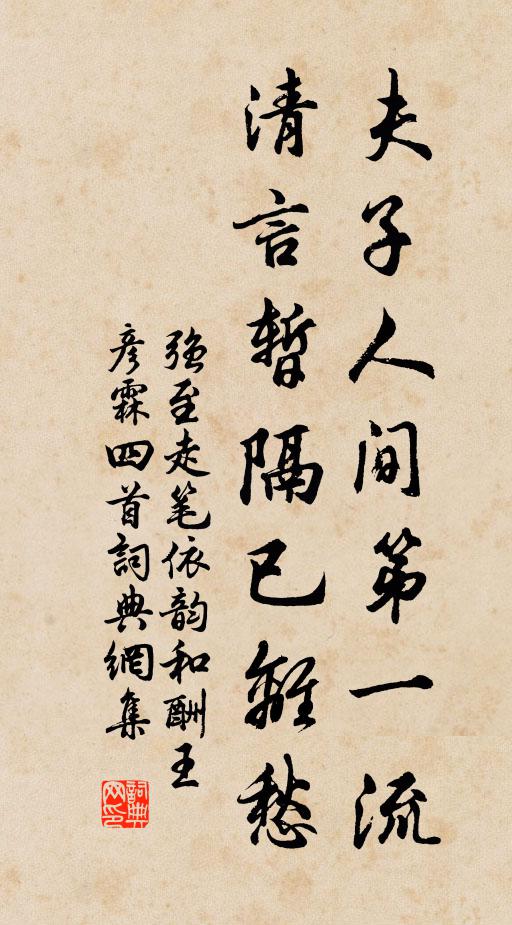 夫子人间第一流
清言暂隔已離愁
强至走笔依韵和酬王
彦霖四首詞典網集
詞典
网印